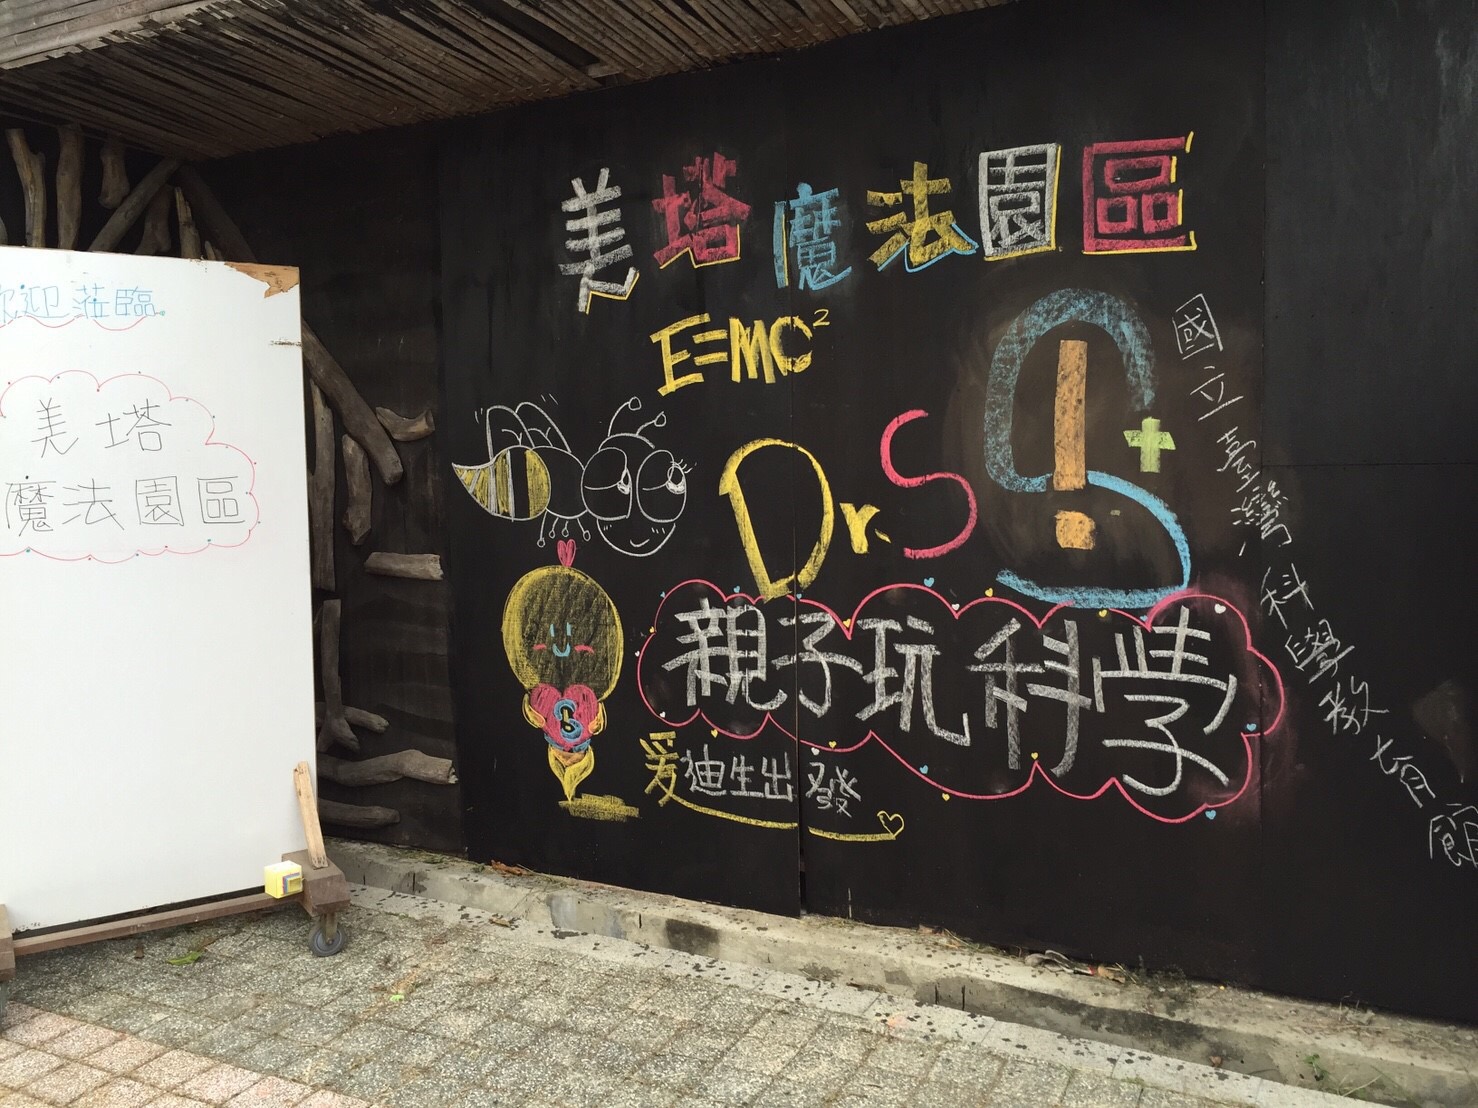 歡迎蒞臨
美塔
魔法園區
美塔魔法園區
E=MC²
Dr.S
親子玩科學
爱迪生出發
國立臺灣科學教育館